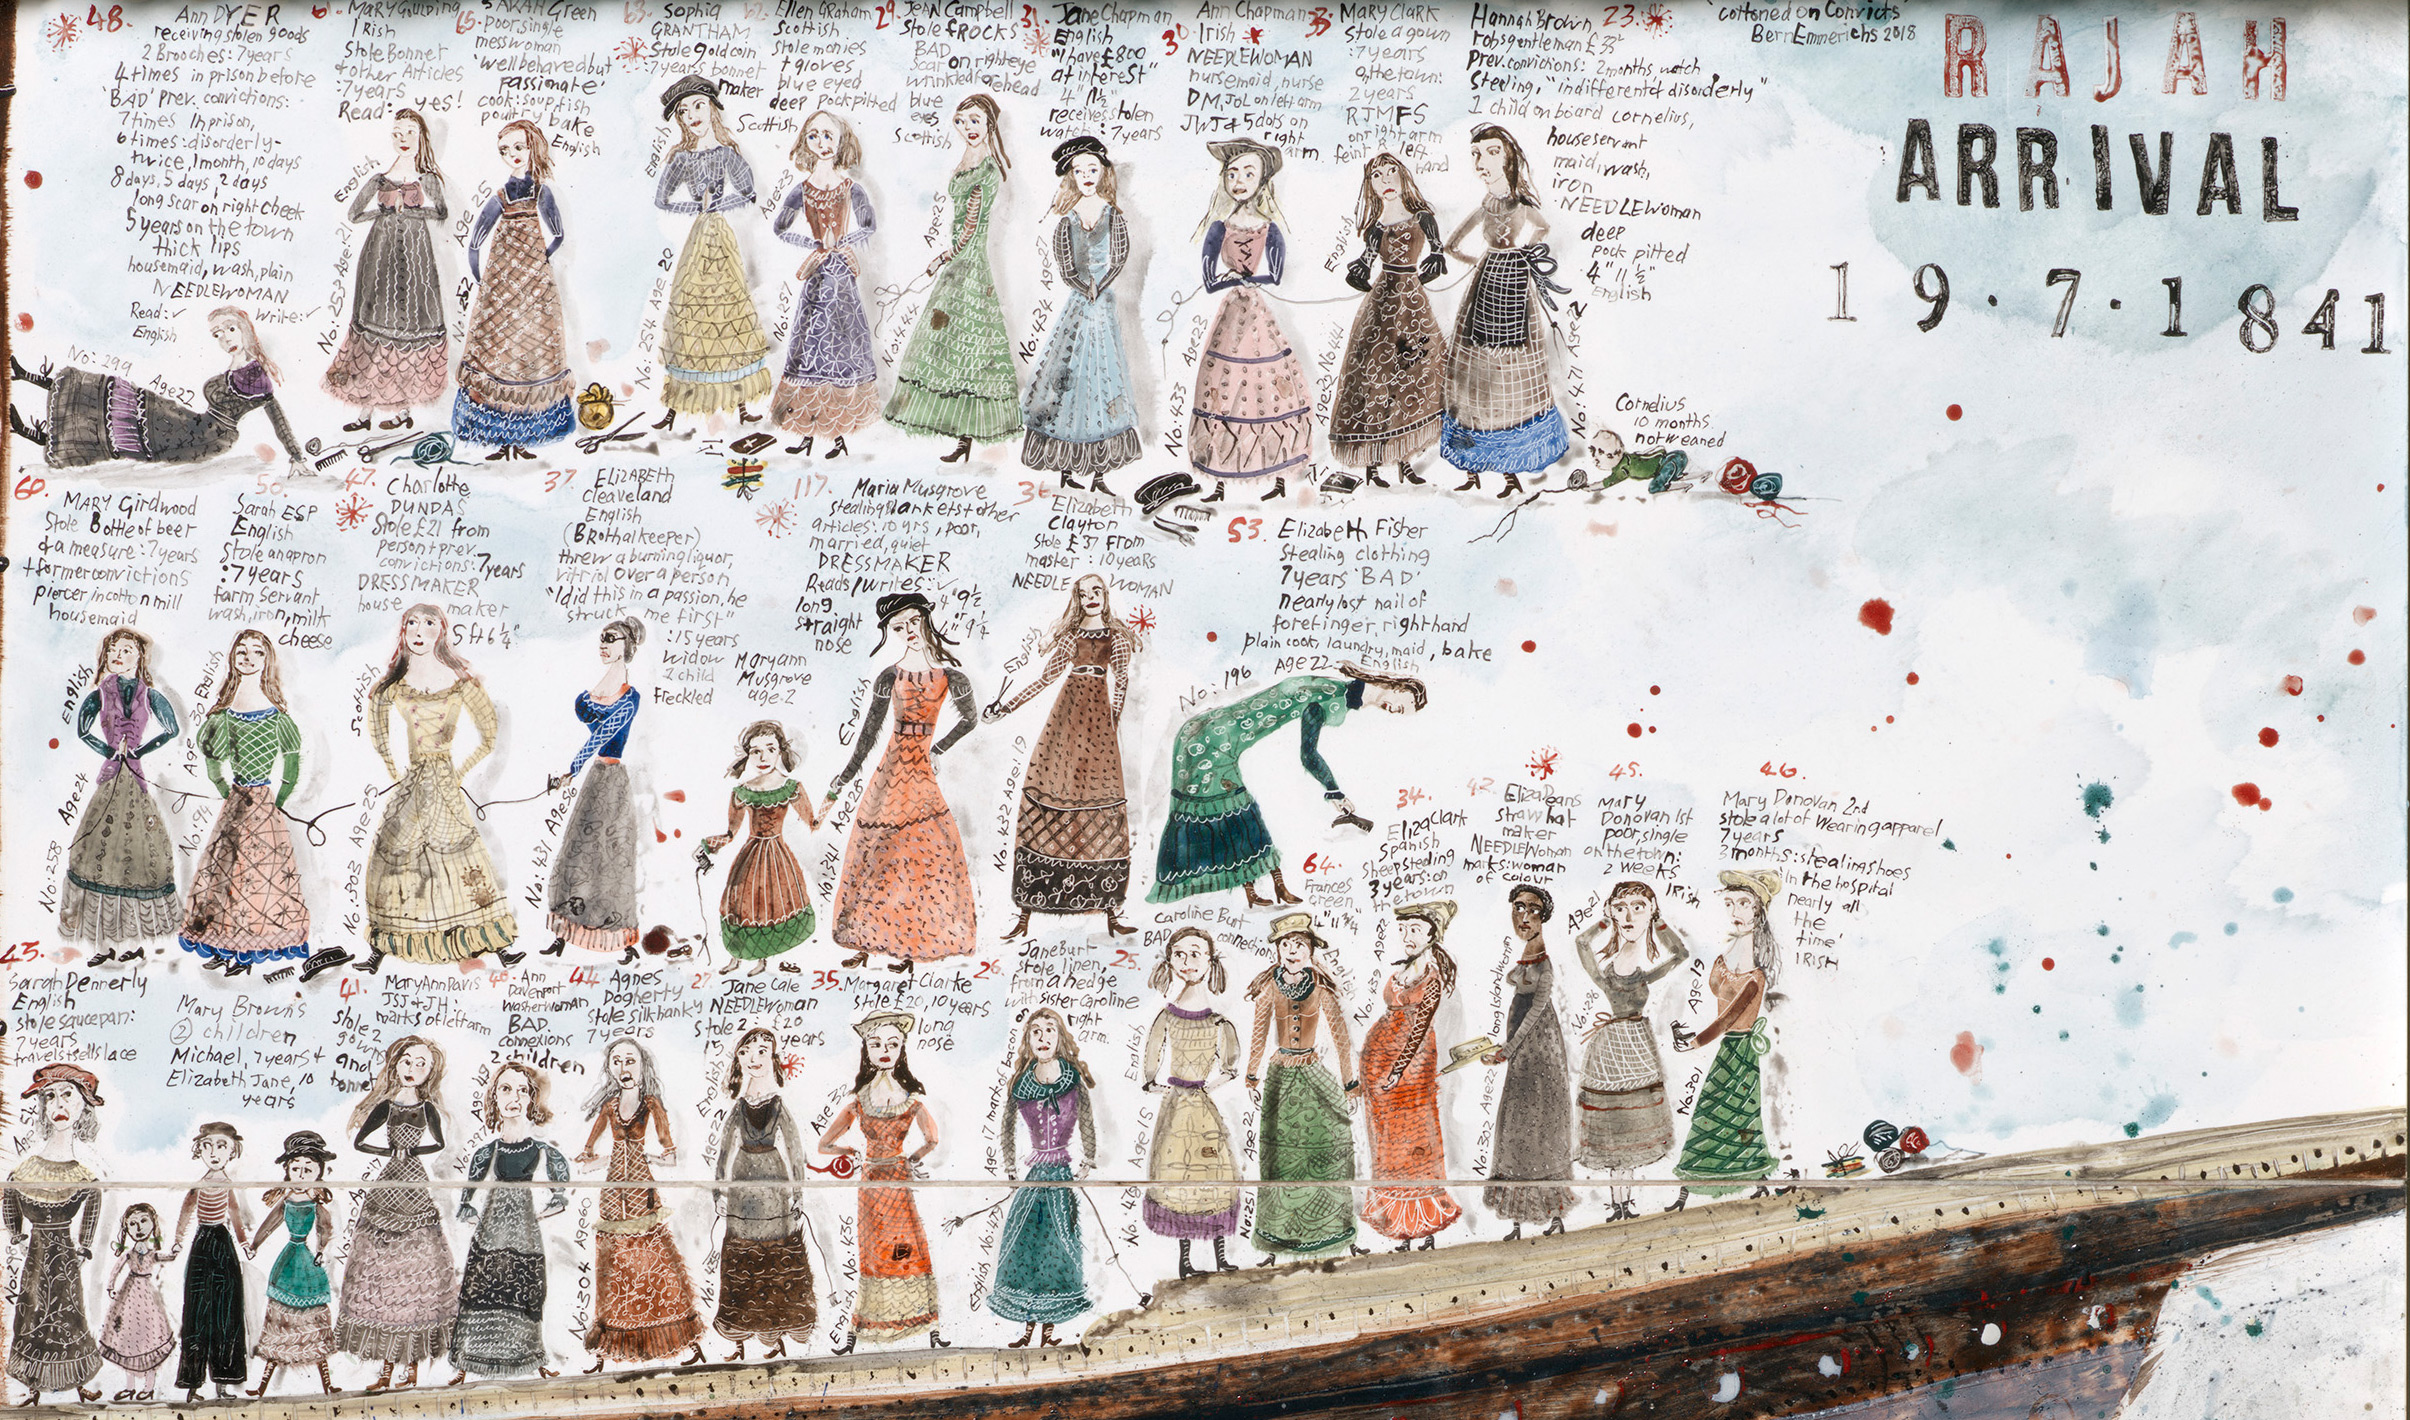 48.
Ann DYER
receiving stolen goods
2 Brooches: 7 years
4 times in prison before
'BAD' prev. convictions:
7 times In prison,
6 times: disorderly-
twice, 1 month, 10 days
8 days, 5 days, 2 days
long scar on right cheek
5 years on the town
thick lips
housemaid, wash, plain
NEEDLEWOMAN
Read: ✓ Write: ✓
English
No: 299 Age 22
61. MARY Goulding
IRish
Stole Bonnet
& other Articles
: 7 years
Read: yes!
English
No: 253 Age: 21
65. SARAH Green
poor, single
messwoman
'well behaved but
passionate'
cook: soup, fish
poultry bake
English
Age 25
No: 252
63. Sophia
GRANTHAM
Stole gold coin
7 years bonnet
maker
English
No: 254 Age 20
62. Ellen Graham
Scottish
stole monies
+ gloves
blue eyed
deep pockpitted
Scottish
Age 23
No: 257
29. JEAN Campbell
Stole fROCKS
BAD
Scar on right eye
wrinkled forehead
blue
eyes
Scottish
Age 25
No: 444
31. Jane Chapman
English
"I have £800
at interest"
4" 11½"
receives stolen
watch: 7 years
No: 434 Age 27
30. Ann Chapman
Irish
NEEDLEWOMAN
nursemaid, nurse
DM, JOL on left arm
JWJ & 5 dots on
right
arm.
No: 433 Age 23
33. MARY CLARK
Stole a gown
: 7 years
on the town:
2 years
RJMFS
on right arm
feint R left
hand
English
Age 23 No 444
Hannah Brown 23.
robs gentleman £33
prev. convictions: 2 months, watch
Stealing, "indifferent & disorderly"
1 child on board cornelius,
house servant
maid, wash,
iron
NEEDLEWoman
deep
pock pitted
4" 11½"
English
No: 471 Age 22
Cornelius
10 months
not weaned
'cottoned on Convicts'
Bern Emmerichs 2018
RAJAH
ARRIVAL
19.7.1841
60.
MARY Girdwood
Stole Bottle of beer
& a measure: 7 years
+ former convictions
piercer, in cotton mill
housemaid
English
Age 24
No: 258
50.
Sarah ESP
English
stole an apron
: 7 years
farm servant
wash, iron, milk
cheese
Age 30 English
No: 94
47.
Charlotte
DUNDAS
Stole £21 from
person & prev.
convictions: 7 years
DRESSMAKER
house maker
5 ft 6¼"
Scottish
No: 303 Age 25
37. ELIZABETH
Cleaveland
English
(Brothal keeper)
threw a burning liquor,
vitriol over a person
"I did this in a passion, he
struck me first"
: 15 years
widow
1 child
freckled
No: 431 Age 56
117. Maria Musgrove
stealing blankets & other
articles: 10 yrs, poor,
married, quiet
DRESSMAKER
Reads/writes: ✓
long
straight
nose
4" 9½
or
4" 9¼
English
No: 241 Age 28
Mary ann
Musgrove
age: 2
36. Elizabeth
Clayton
Stole £37 from
master: 10 years
NEEDLE WOMAN
English
No: 432 Age: 19
53. Elizabeth Fisher
Stealing clothing
7 years 'BAD'
nearly lost nail of
forefinger, right hand
plain cook, laundry, maid, bake
Age 22 English
No: 196
43.
Sarah Dennerly
English
Stole saucepan:
7 years
travels & sells lace
Age 54
No: 298
Mary Brown's
2 children
Michael, 7 years &
Elizabeth Jane, 10
years
41. Mary Ann Davis
JSJ & JH:
marks of left arm
stole 2
gowns
and
bonnet
40. Ann
Davenport
washerwoman
BAD.
connexions
2 children
No: 297 Age 49
44. Agnes
Dogherty
stole silk hanky
7 years
No: 304 Age 60
27. Jane Cale
NEEDLEWoman
stole 2: £20
15 years
English
Age 22
No: 435
35. Margaret Clarke
stole £20, 10 years
long
nose
Age 32
English No: 436
26. Jane Burt
stole linen,
from a hedge
with sister Caroline
Age 17 mark of bacon on right
arm.
English No: 479
25.
Caroline Burt
BAD connections
English
Age 15
No: 48
64.
Frances
Green
4" 11¾"
English
Age 22
No: 251
34.
Eliza Clark
Spanish
Sheep stealing
3 years: on
the town
No: 439 Age 22
42. Eliza Deans
straw hat
maker
NEEDLEWoman
marks: woman
of colour
long Island woman
No: 302 Age 22
45.
Mary
Donovan 1st
poor, single
on the town:
2 weeks
IRISH
Age 21
No: 296
46.
Mary Donovan 2nd
stole a lot of Wearing apparel
7 years
3 months: stealing shoes
'In the hospital
nearly all
the
time'
IRISH
Age 19
No: 301